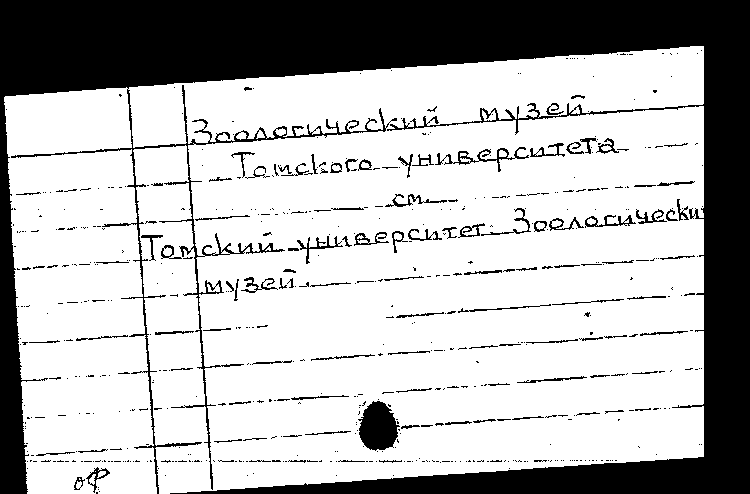 Зоологический музей
Томского университета
см.
Томский университет. Зоологически
музей.
оф